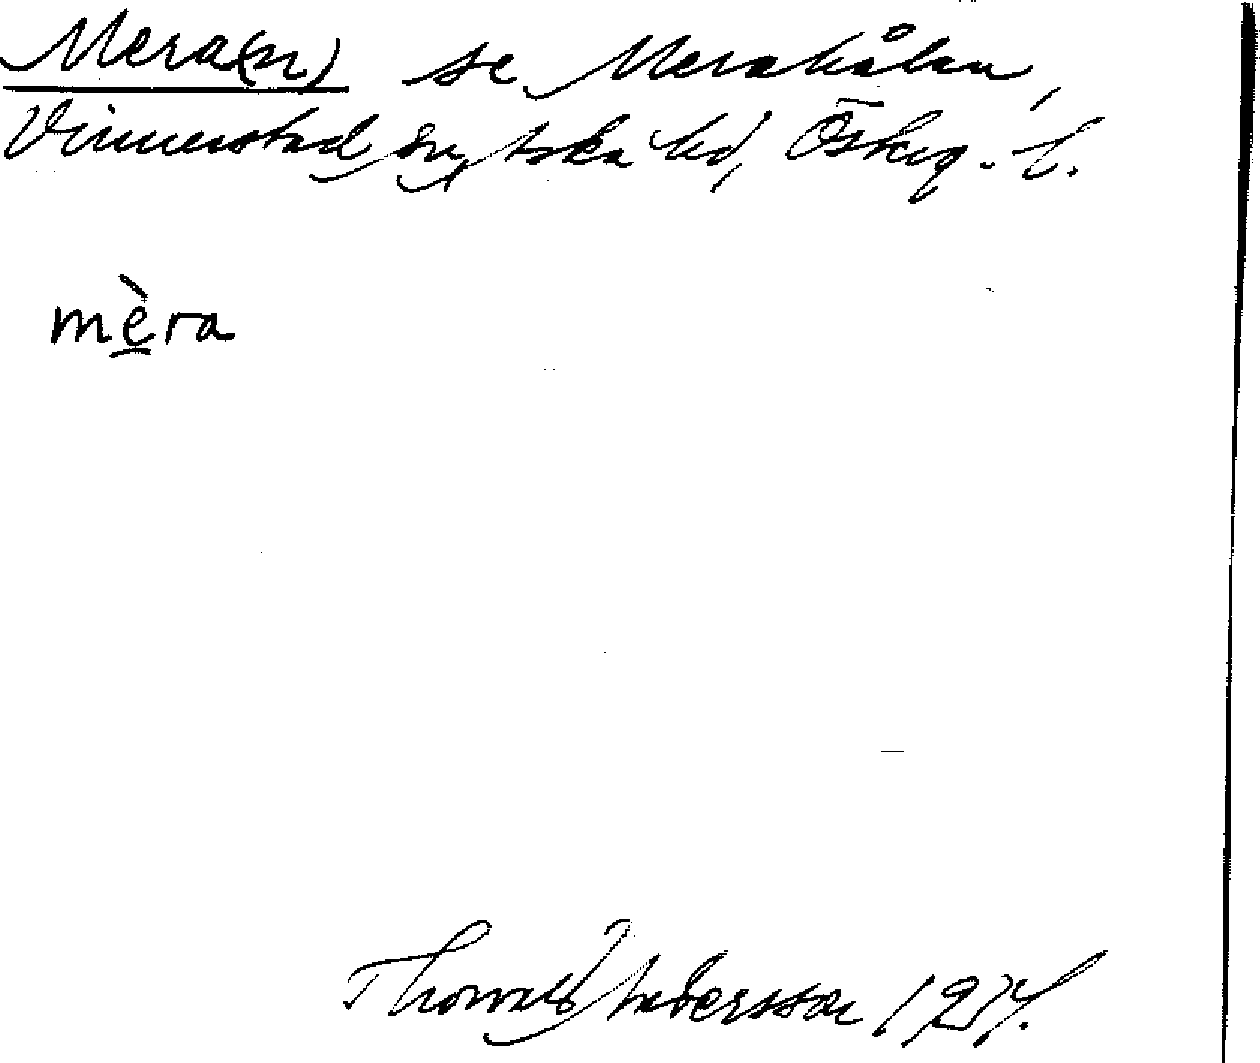 Mera(n) se Merakålen,
Vinnerstad sn, Aska hd, Östkg. l.
mèra
Thorvald Andersson 1927.